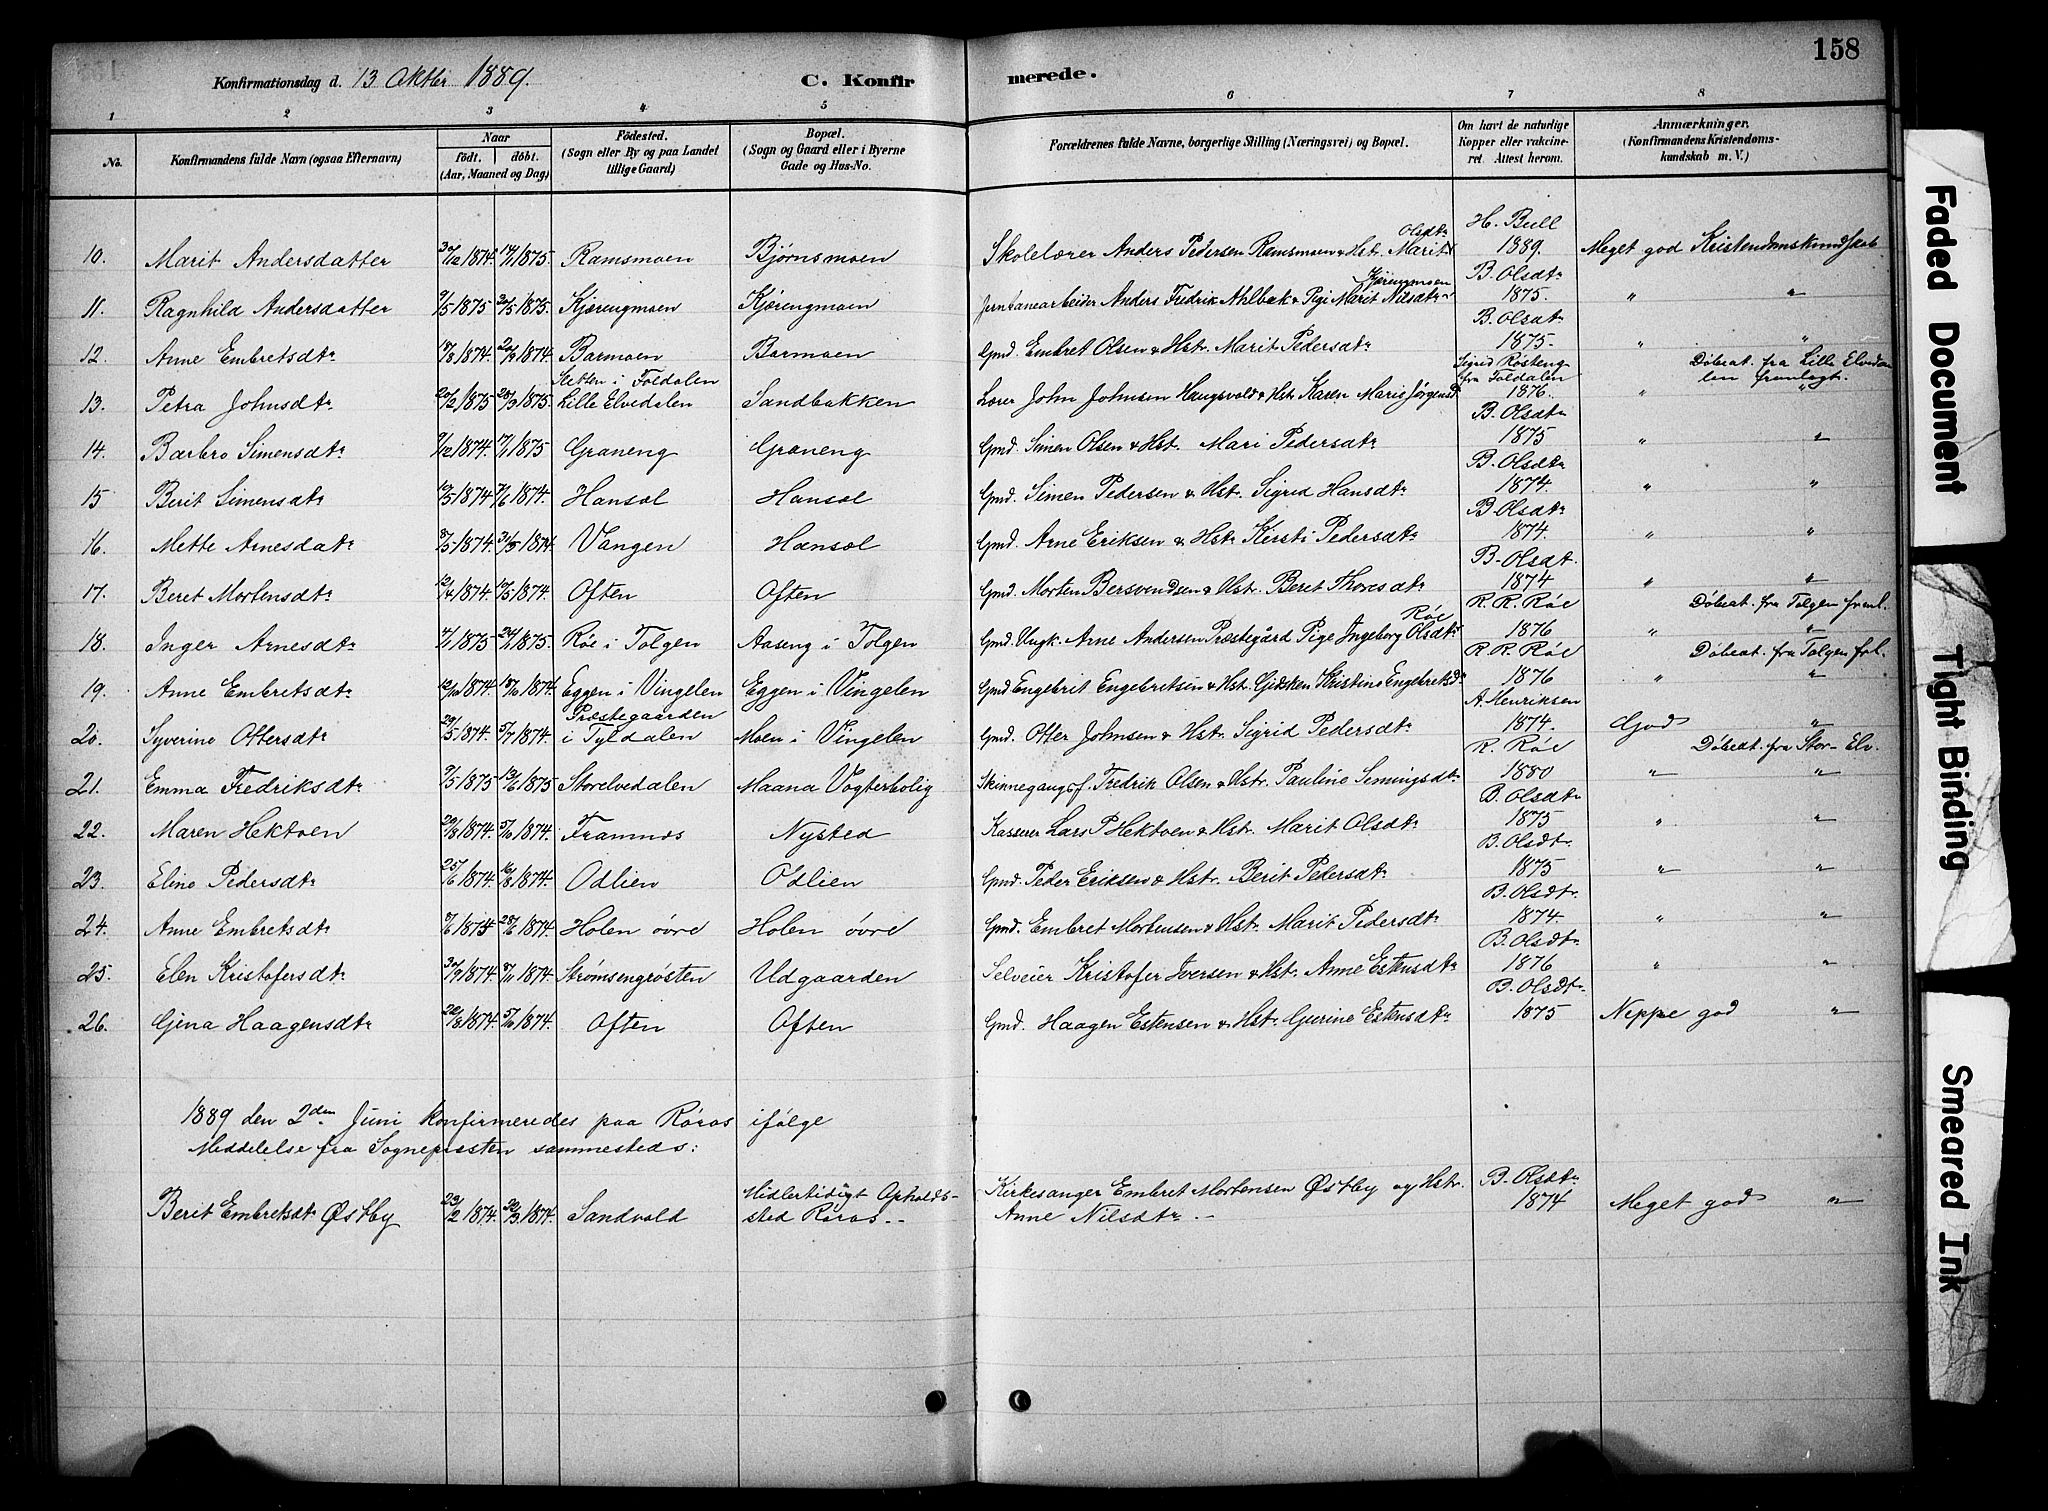 158
Konfirmationsdag d. 13 Oktbr 1889.
C. Konfirmerede.
1 2 3 4 5 6 7 8
No. Konfirmandens fulde Navn (ogsaa Efternavn) Naar födt. döbt. (Aar, Maaned og Dag) Födested. (Sogn eller By og paa Landet tillige Gaard) Bopæl. (Sogn og Gaard eller i Byerne Gade og Hus-No. Forældrenes fulde Navne, borgerlige Stilling (Næringsvei) og Bopæl. Om havt de naturlige Kopper eller vakcineret. Attest herom. Anmærkninger. (Konfirmandens Kristendomskundskab m. V.)
10. Marit Andersdatter 30/12 1874. 1875. Ramsmoen Bjørnsmoen Skolelærer Anders Pedersen Ramsmoen & Hst. Marit Olsdtr H. Bull 1889. Meget god Kristendomskundskab
11. Ragnhild Andersdatter 9/5 1875 30/5 1875. Kjærengmoen Kjærengmoen Jernbanearbeider Anders Fredrik Ahlbæk & Pige Marit Nilsdtr Kjærengmoen B. Olsdtr 1875. " "
12. Anne Embretsdtr 18/8 1874. 20/9 1874. Barmoen Barmoen Gmd. Embret Olsen & Hst. Marit Pedersdtr B. Olsdtr 1875. " "
13. Petra Johnsdtr 20/2 1875 28/3 1875. Sletten i Foldalen Lille Elvedalen Sandbakken Lærer John Johnsen Haugsvold & Hst. Karen Marie Jørgensd. Sigrid Røsteng fra Foldalen 1876. " Døbeat. fra Lille Elvedalen fremlagt. "
14. Barbro Simensdtr 9/12 1874. 17/1 1875 Graneng Graneng Gmd. Simen Olsen & Hst. Mari Pedersdtr B. Olsdtr 1875 " "
15 Berit Simensdtr 1874. 1874. Hansæl Hansæl Gmd. Simen Pedersen & Hst. Sigrid Hansdtr B. Olsdtr 1874. " "
16. Mette Arnesdatr 8/5 1874. 31/5 1874 Vangen Hansæl Gmd. Arne Eriksen & Hstr Kersti Pedersdtr B. Olsdtr 1874. " "
17. Beret Mortensdtr 12/4 1874. 10/5 1874. Often Often Gmd. Morten Bersvendsen & Hst. Beret Thoresdtr B. Olsdt. 1874 " "
18. Inger Arnesdtr 4/1 1875 24/1 1875. Røe i Tolgen Aaseng i Tolgen Gmd. Ungk. Arne Andersen Præstegård Pige Ingeborg Olsdtr Røe R. R. Røe 1876 " Døbeat. fra Tolgen freml. "
19. Anne Embretsdtr 12/10 1874. 18/10 1874. Eggen i Vingelen Eggen i Vingelen Gmd Engebrit Engebritsen & Hst. Gidsken Kristine Engebretsd. R. R. Røe 1876 " Døbeat. fra Tolgen frl. "
20. Syverine Ottersdtr 29/5 1874. 5/7 1874. Præstegaarden i Tyldalen Moen i Vingelen Gmd. Otter Johnsen & Hstr. Sigrid Pedersdtr A. Henriksen 1874. God "
21. Emma Fredriksdtr 9/5 1875 13/6 1875 Storelvedalen Maana Vogterbolig Skinnegangsf. Fredrik Olsen & Hstr. Pauline Semingsdtr R. Røe 1880 " Døbeat. fra Stor-Elv. "
22. Maren Hektoen 29/8 1874. 5/10 1874. Framnes Nysted Kasserer Lars P Hektoen & Hst. Marit Olsdtr B. Olsdtr 1875 " "
23. Eline Pedersdtr 25/6 1874. 16/8 1874. Odlien Odlien Gmd. Peder Eriksen & Hstr. Berit Pedersdtr. B. Olsdtr. 1875 " "
24. Anne Embretsdtr 8/6 1874 28/6 1874. Holen øvre Holen øvre Gmd. Embret Mortensen & Hst. Marit Pedersdtr B. Olsdtr. 1874. " "
25. Elen Kristofersdtr 30/9 1874. 8/11 1874. Strømsengrøsten Udgaarden Selveier Kristofer Iversen & Hst. Anne Estensdtr B. Olsdtr. 1876 " "
26. Gjena Haagensdtr 22/8 1874. 5/10 1874. Often Often Gmd. Haagen Estensen & Hst. Gurine Estensdtr B. Olsdtr. 1875 Neppe god "
1889 den 2den Juni konfirmeredes paa Røros ifølge
Meddelelse fra Sognepresten sammesteds:
Berit Embretsdtr Østby 23/2 1874. 22/3 1874. Sandvold Midlertidigt Opholdssted Røros.- Kirkesanger Embret Mortensen Østby og Hstr. Anne Nilsdtr. - B. Olsdtr. 1874 Meget god "
Faded Document
Tight Binding
Smeared Ink